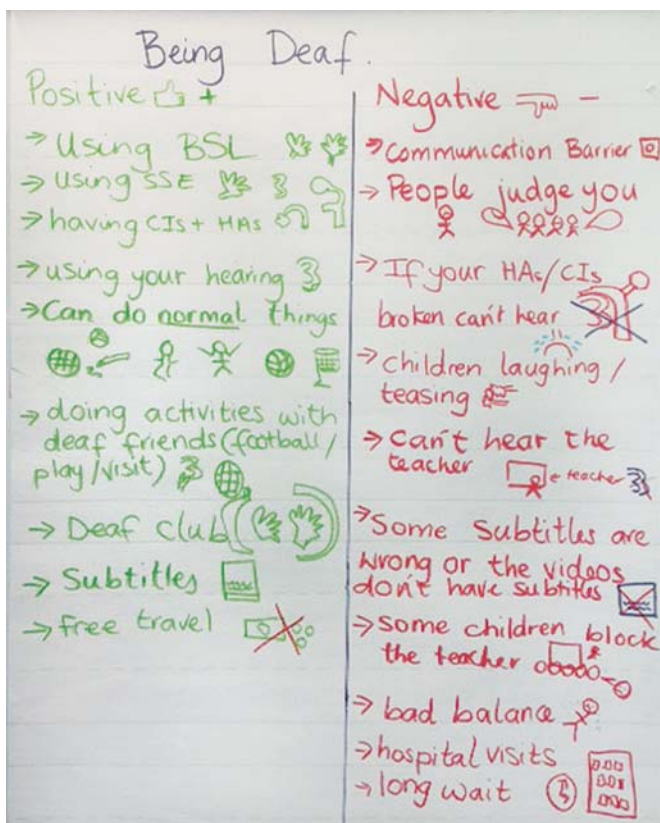 Being Deaf.
Positive +
→ Using BSL
→ Using SSE
→ having CIs + HAs
→ using your hearing
→ Can do normal things
→ doing activities with
deaf friends (football/
play/visit)
→ Deaf club
→ Subtitles
→ free travel
Negative -
→ Communication Barrier
→ People judge you
→ If your HAs/CIs
broken can't hear
→ children laughing /
teasing
→ Can't hear the
teacher
← teacher
→ Some Subtitles are
wrong or the videos
don't have subtitles
→ some children block
the teacher
→ bad balance
→ hospital visits
→ long wait